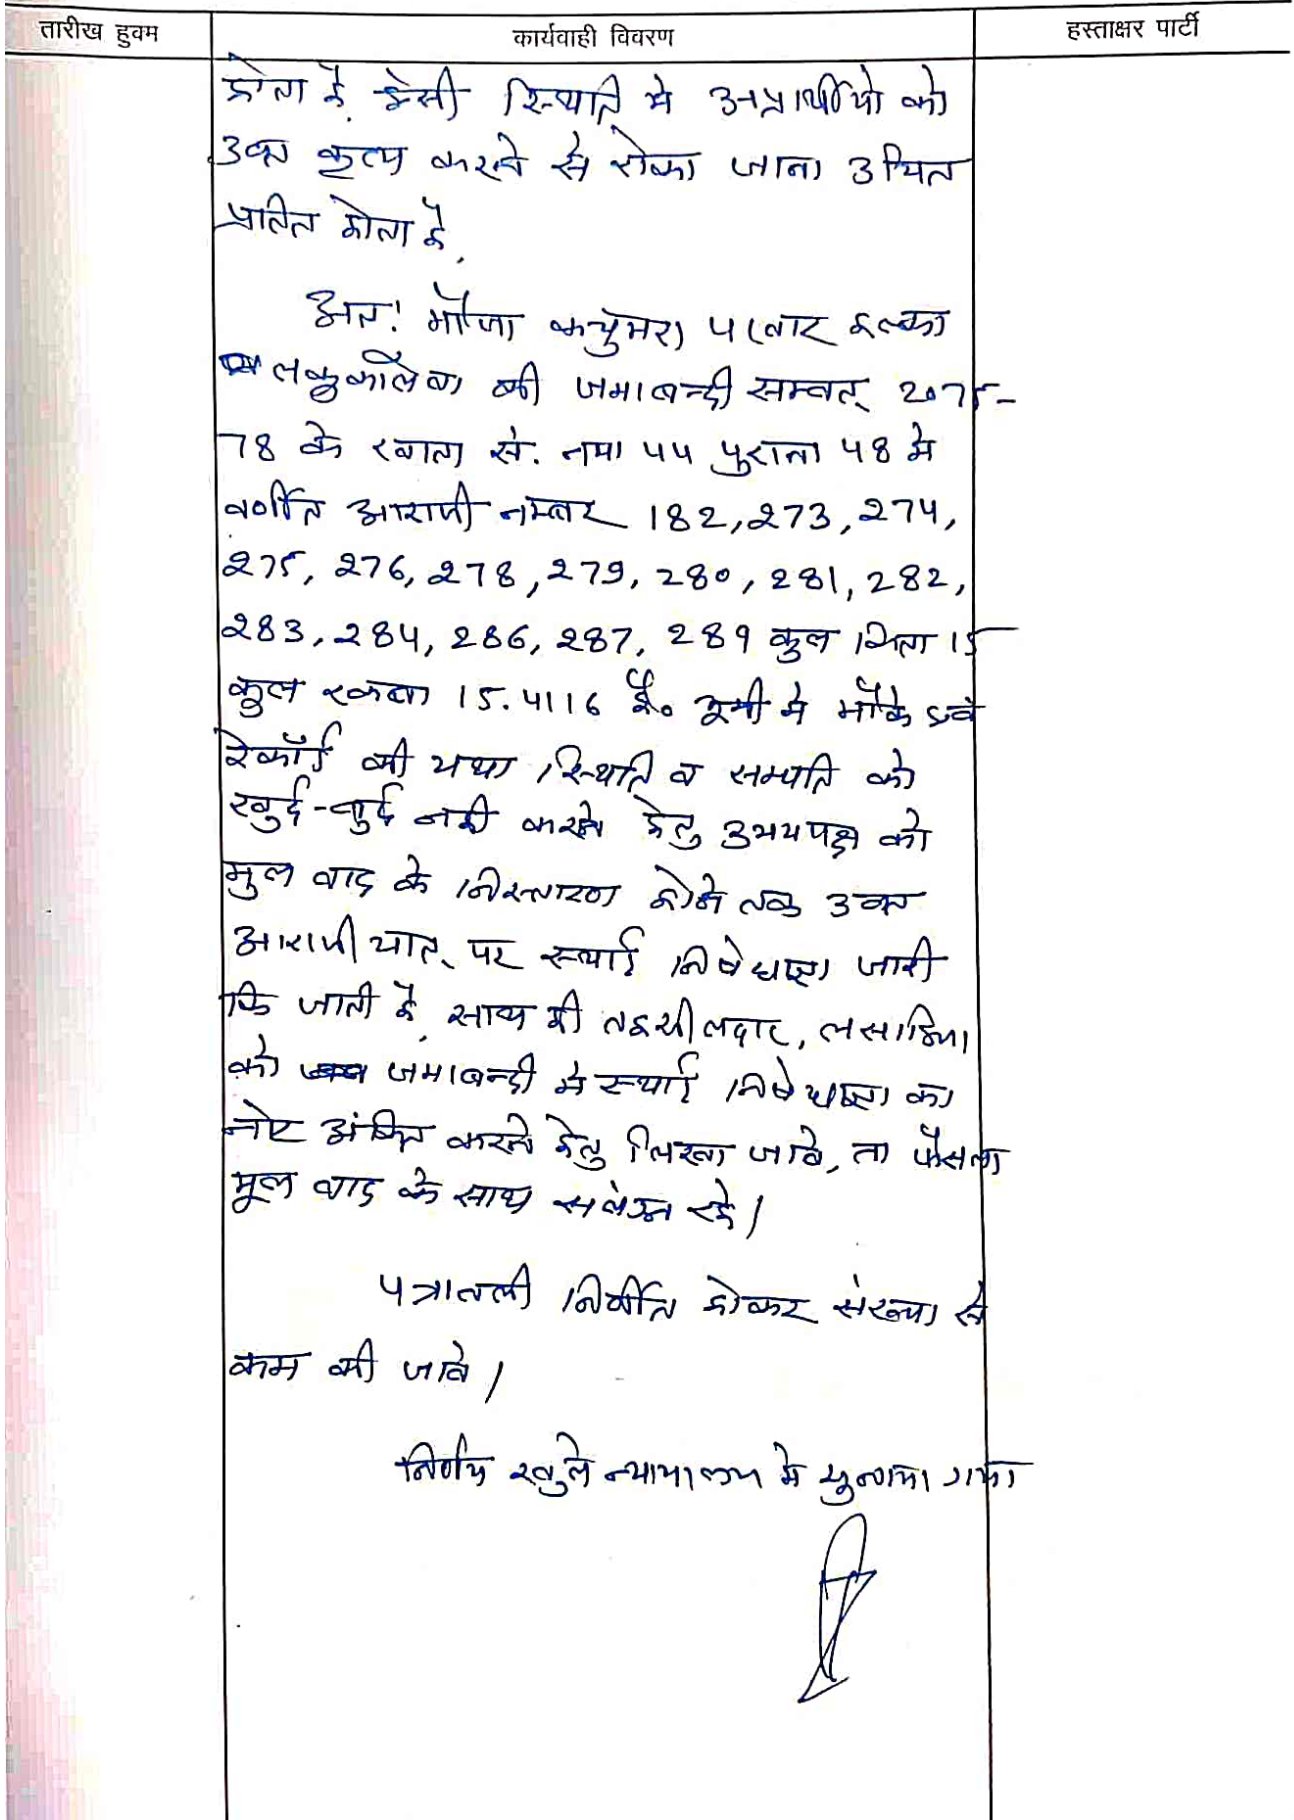 तारीख हुक्म
कार्यवाही विवरण
हस्ताक्षर पार्टी
होता है. ऐसी स्थिति मे अप्रार्थीयो को
उक्त कृत्य करने से रोका जाना उचित
प्रतित होता है.
अत: मौजा कचुमरा पटवार हल्का
की जमाबन्दी सम्वत् 2075-
78 के खाता सं. नया 44 पुराना 48 मे
वर्णीत आराजी नम्बर 182, 273, 274,
275, 276, 278, 279, 280, 281, 282,
283, 284, 286, 287, 289 कुल किता 15
कुल रकबा 15.4116 है० भूमी मे मौके एवं
रेकॉर्ड की यथा स्थिति व सम्पति को
खुर्द-बुर्द नही करने हेतु उभयपक्ष को
मुल वाद के निस्तारण होने तक उक्त
आराजीयात् पर स्थाई निषेधाज्ञा जारी
कि जाती है. साथ ही तहसीलदार, लसाडिया
को जमाबन्दी मे स्थाई निषेधाज्ञा का
नोट अंकित करने हेतु लिखा जावे, ता फैसला
मूल वाद के साथ संलग्न रहे।
पत्रावली निर्णीत होकर संख्या से
कम की जावे।
निर्णय खुले न्यायालय मे सुनाया गया